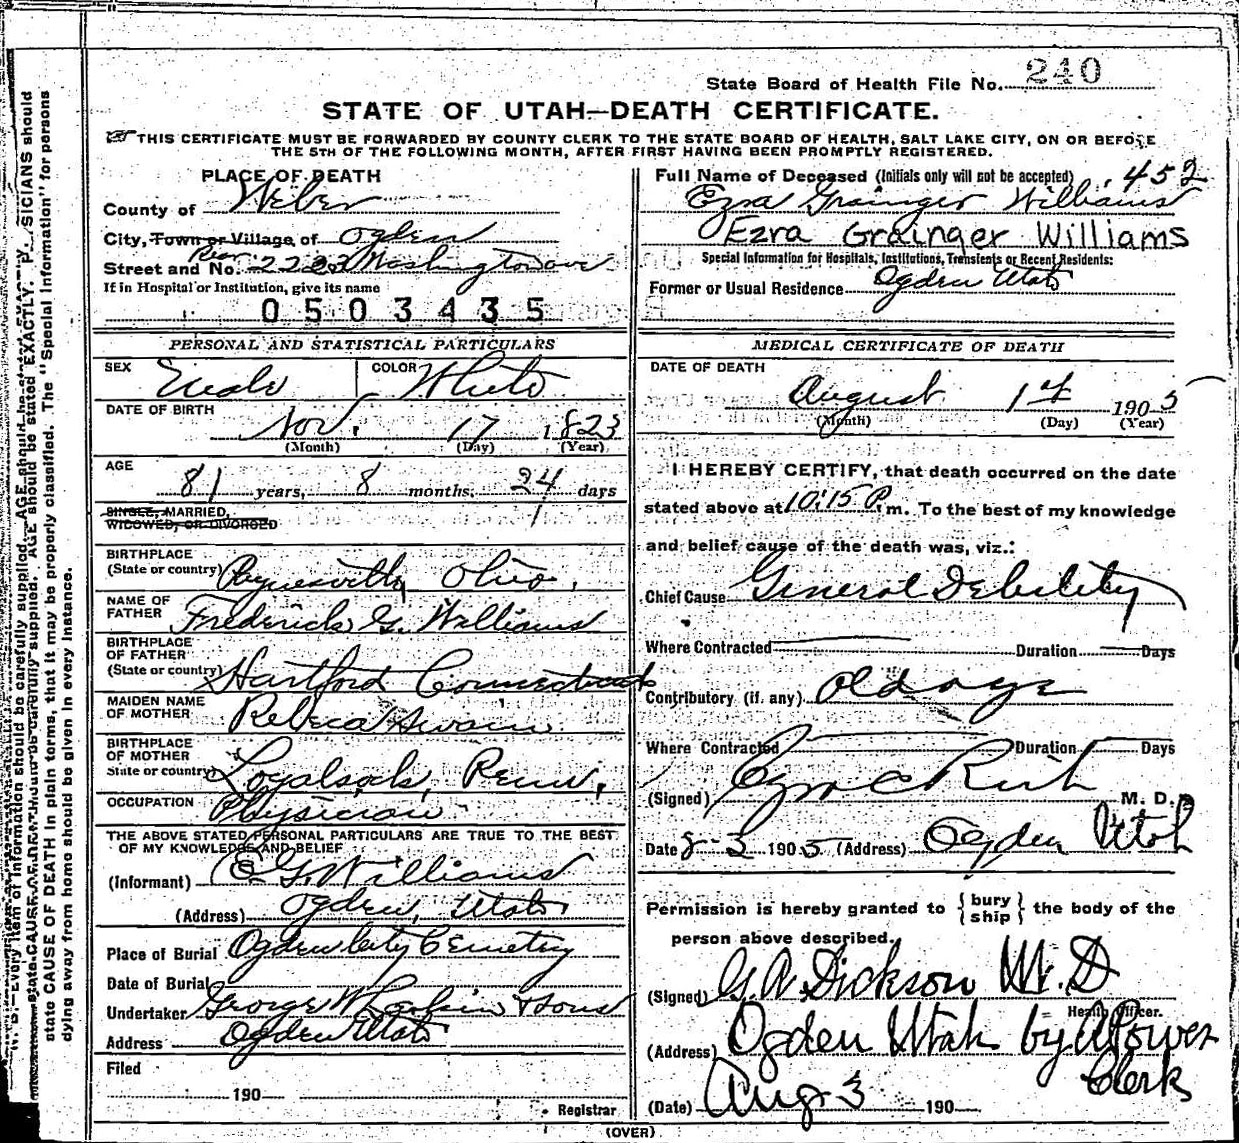 State Board of Health File No. 240
STATE OF UTAH—DEATH CERTIFICATE.
THIS CERTIFICATE MUST BE FORWARDED BY COUNTY CLERK TO THE STATE BOARD OF HEALTH, SALT LAKE CITY, ON OR BEFORE
THE 5TH OF THE FOLLOWING MONTH, AFTER FIRST HAVING BEEN PROMPTLY REGISTERED.
PLACE OF DEATH
County of Weber
City, Town or Village of Ogden
Street and No. Rear Washington ave
If in Hospital or Institution, give its name
0503435
Full Name of Deceased (Initials only will not be accepted) 452
Ezra Grainger Williams
Ezra Grainger Williams
Special Information for Hospitals, Institutions, Transients or Recent Residents:
Former or Usual Residence Ogden Utah
PERSONAL AND STATISTICAL PARTICULARS
SEX Male COLOR White
DATE OF BIRTH
Nov. 17 1823
(Month) (Day) (Year)
AGE
81 years, 8 months, 24 days
SINGLE, MARRIED,
WIDOWED, OR DIVORCED
BIRTHPLACE
(State or country) Paynesville, Ohio,
NAME OF
FATHER Frederick G. Williams
BIRTHPLACE
OF FATHER
(State or country) Hartford Connecticut
MAIDEN NAME
OF MOTHER Rebeca Swain
BIRTHPLACE
OF MOTHER
State or country) Loyalsock, Penn,
OCCUPATION Physician
THE ABOVE STATED PERSONAL PARTICULARS ARE TRUE TO THE BEST
OF MY KNOWLEDGE AND BELIEF
(Informant) E G. Williams
(Address) Ogden, Utah
Place of Burial Ogden City Cemetry
Date of Burial
Undertaker George W & Sons
Address Ogden Utah
Filed
190
Registrar
MEDICAL CERTIFICATE OF DEATH
DATE OF DEATH
August 1st 1905
(Month) (Day) (Year)
I HEREBY CERTIFY, that death occurred on the date
stated above at 10:15 P. m. To the best of my knowledge
and belief cause of the death was, viz.:
Chief Cause General Debility
Where Contracted Duration Days
Contributory (if any) Old age
Where Contracted Duration Days
(Signed) Ezra C Rich M. D.
Date 8-3 1905 (Address) Ogden Utah
Permission is hereby granted to { bury ship } the body of the
person above described.
(Signed) G. A. Dickson M. D
Health Officer.
(Address) Ogden Utah by A Power
Clerk
(Date) Aug 3 190
(OVER)
N. B.—Every item of information should be carefully supplied. AGE should be stated EXACTLY. PHYSICIANS should
state CAUSE OF DEATH in plain terms, that it may be properly classified. The "Special Information" for persons
dying away from home should be given in every instance.